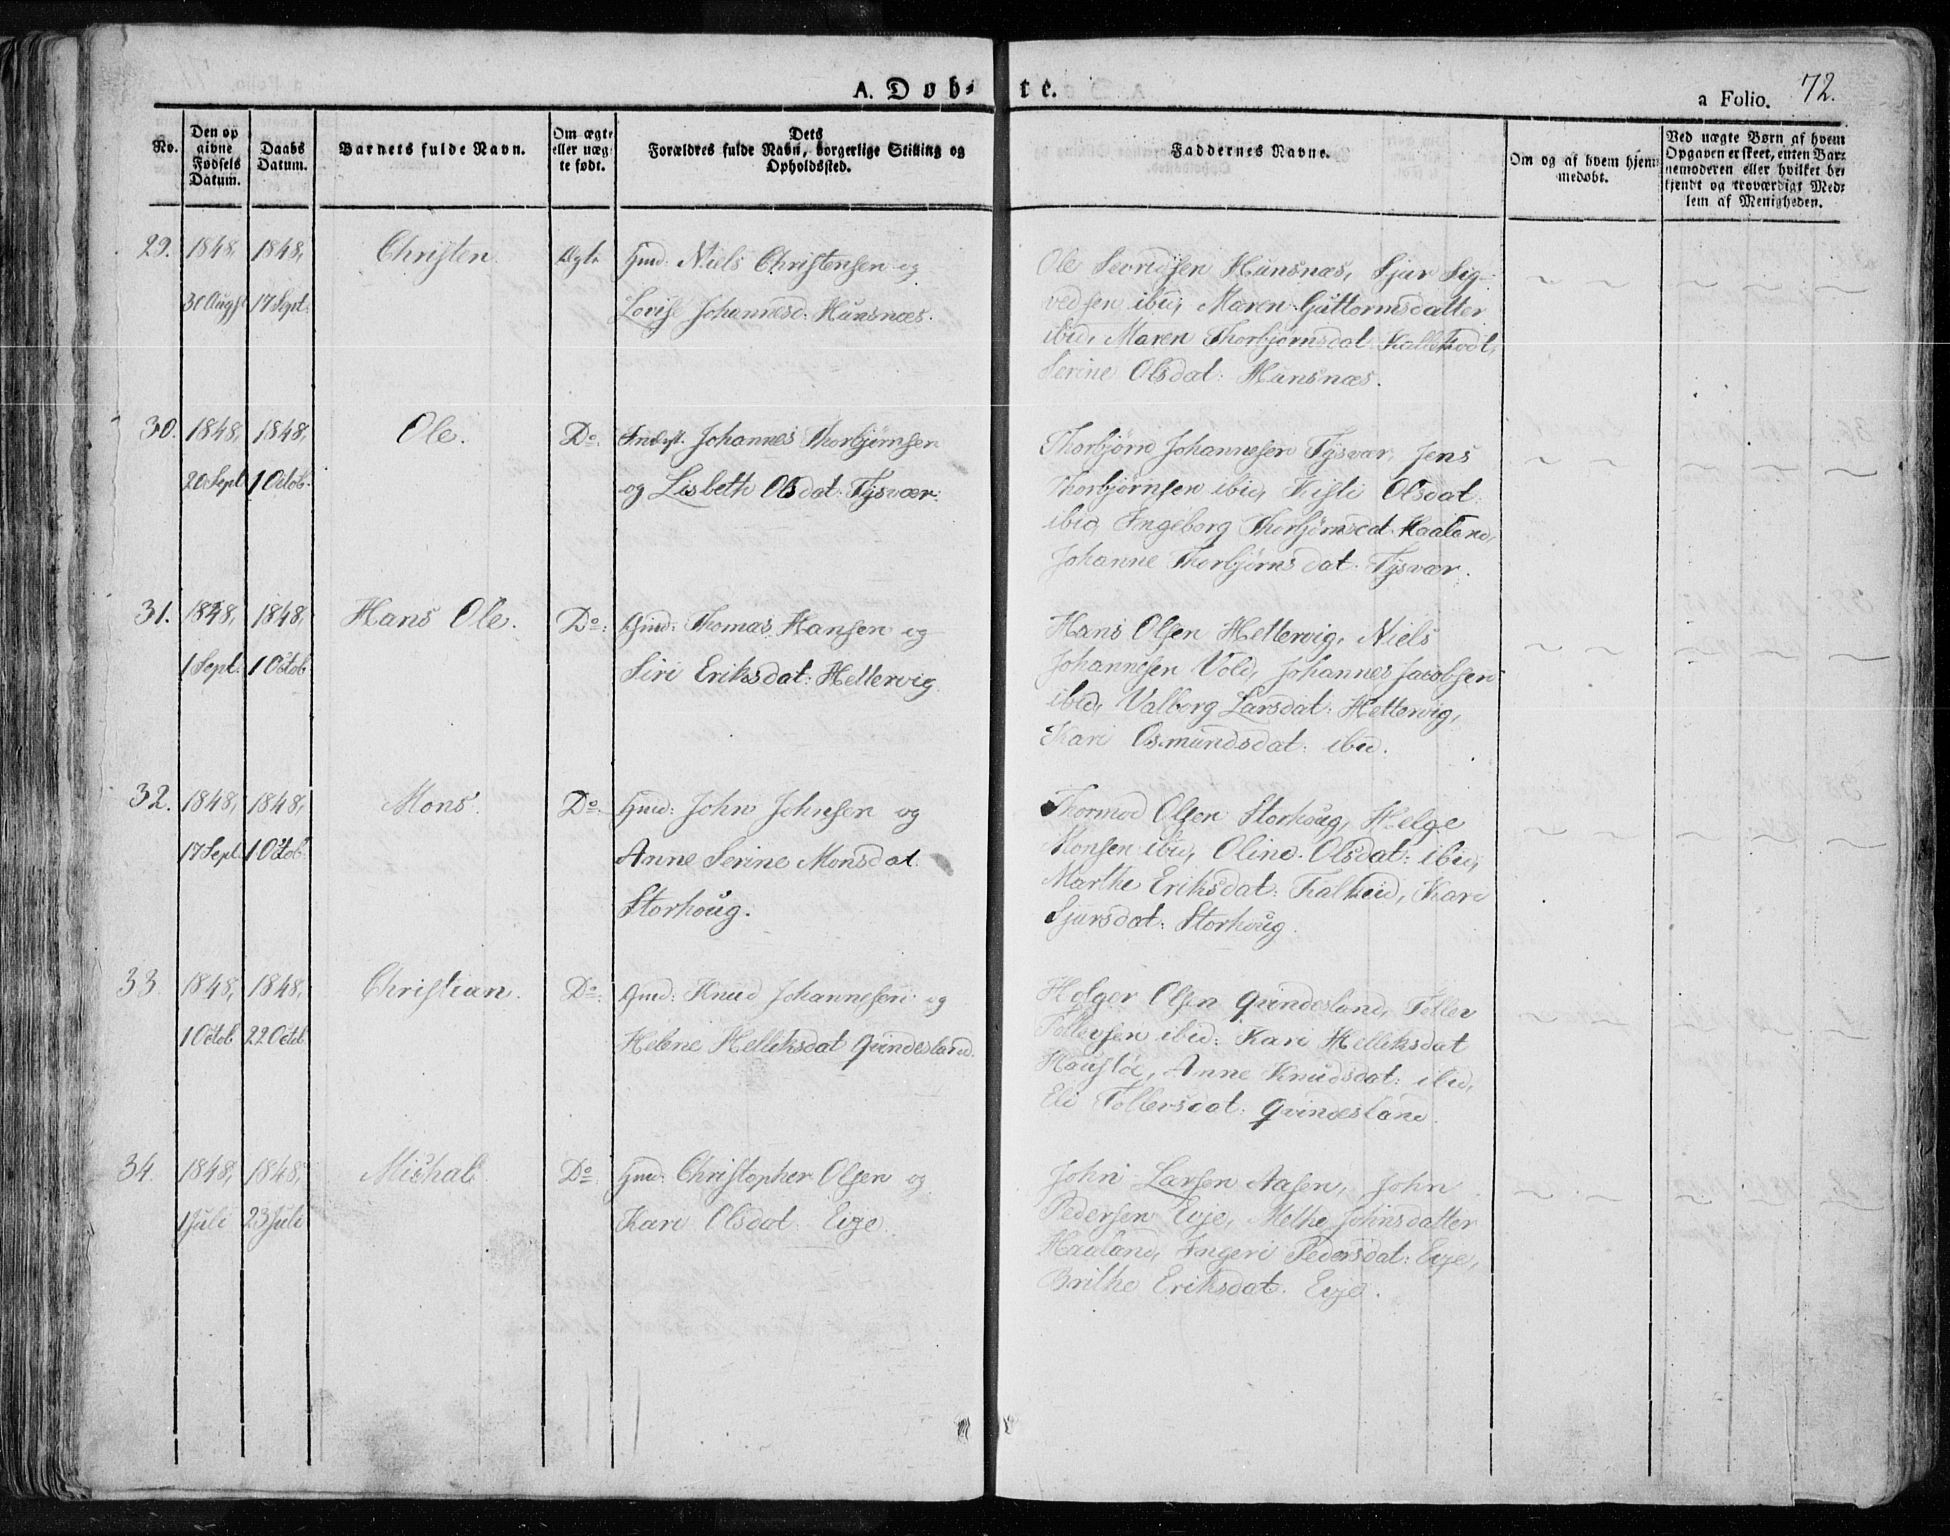 A. Døb-te.
a Folio. 72.
No.
Den opgivne Fødsels Datum.
Daabs Datum.
Barnets fulde Navn.
Om ægte eller uægte født.
Dets Forældres fulde Navn, borgerlige Stilling og Opholdssted.
Faddernes Navne.
Om og af hvem hjemmedøbt.
Ved uægte Børn af hvem Opgaven er skeet, enten Barnemoderen eller hvilket bekjendt og troværdigt Medlem af Menigheden.
29. 1848, 1848, Christen Ægte Gmd: Niels Christensen og
31 Augst 17 Sept. Lovise Johannesd: Hunsnæs.
Ole Sevrinsen Hunsnæs, Sjur Sig-
vedsen ibid, Maren Guttormsdatter
ibid, Maren Thorbjørnsdat:
Serine Olsdat: Hunsnæs.
30. 1848, 1848, Ole. Do: Inderst. Johannes Thorbjørnsen
20 Sept 1 Octob. og Lisbeth Olsdat: Tysvær:
Thorbjørn Johannesen Tysvær, Jens
Thorbjørnsen ibid, Kisti Olsdat:
ibid, Ingeborg Thorbjørnsdat Haaland,
Johanne Thorbjørnsdat: Tysvær.
31. 1848, 1848, Hans Ole. Do: Gmd: Thomas Hansen og
1 Sept. 1 Octob Siri Eriksdat: Hettervig.
Hans Olsen Hettervig, Niels
Johannesen Vold, Johannes Jacobsen
ibid, Valborg Larsdat: Hettervig,
Kari Osmundsdat: ibid.
32. 1848, 1848, Mons. Do: Gmd: John Johnsen og
17 Sept. 1 Octob. Anne Serine Monsdat.
Storhoug.
Thormod Olsen Storhoug, Helge
Monsen ibid, Oline Olsdat: ibid,
Marthe Eriksdat: Falheid, Kari
Sjursdat: Storhoug.
33. 1848, 1848, Christian. Do: Gmd: Knud Johannesen og
1 Octob 22 Octob. Helene Helliksdat Qvindesland.
Holger Olsen Qvindesland, Tollev
Tollevsen ibid: Kari Helliksdat
Haustøe, Anne Knudsdat: ibid,
Eli Tollevsdat: Qvindesland.
34. 1848, 1848, Michal. Do: Gmd: Christopher Olsen og
1 Juli 23 Juli Kari Olsdat: Eige.
John Larsen Aasen, John
Pedersen Eige, Methe Johnsdatter
Haaland, Ingeri Pedersdat: Eige,
Brithe Eriksdat. Eige.